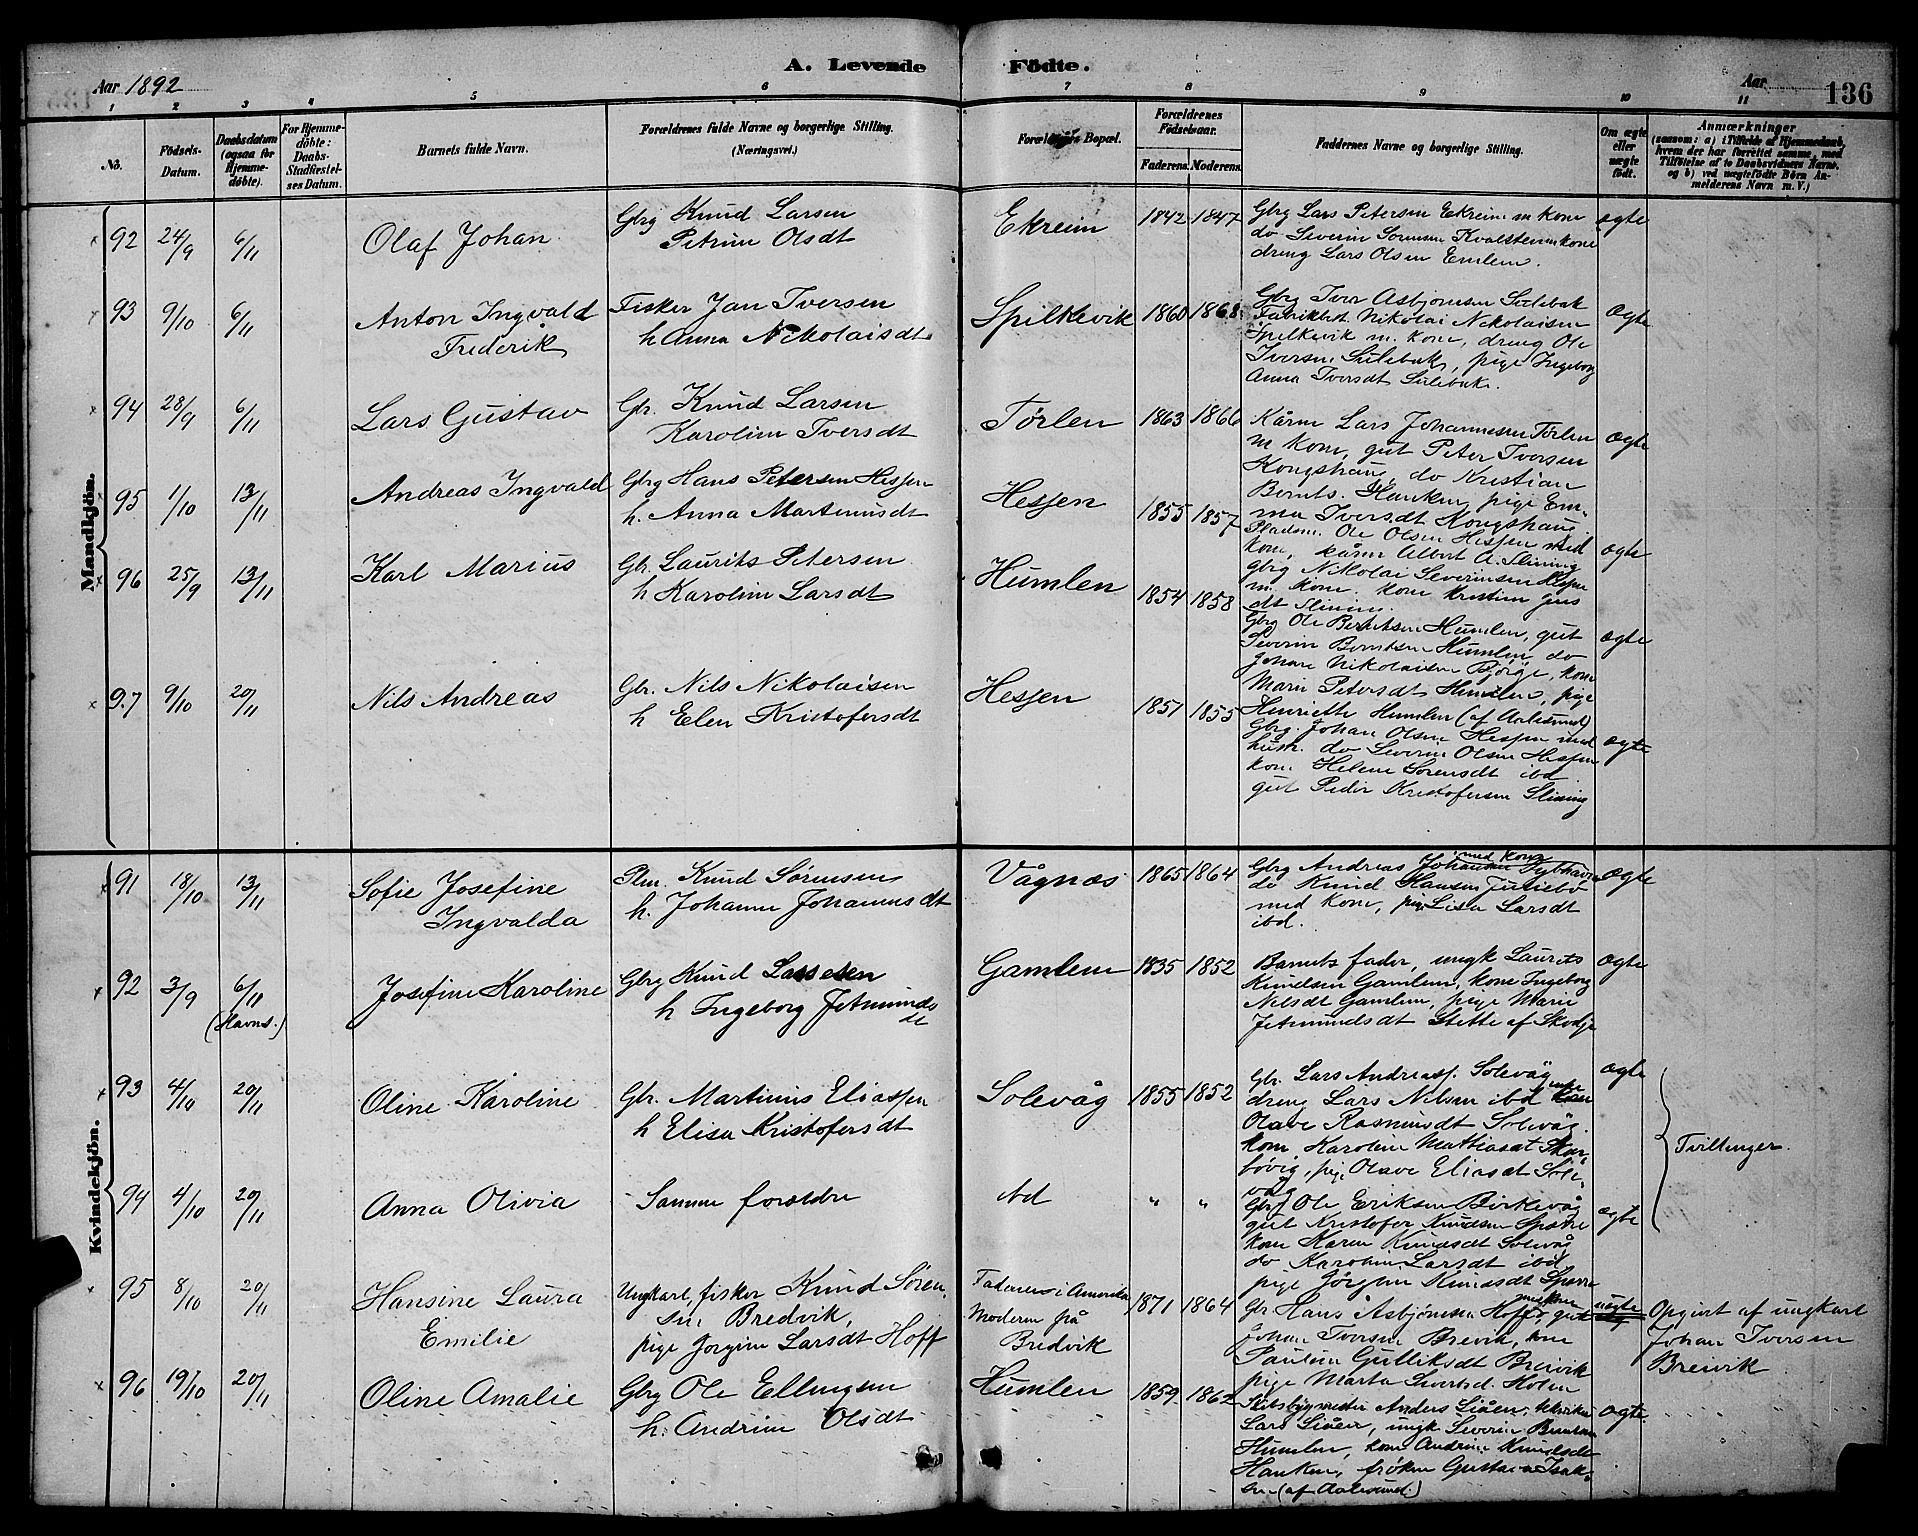 A. Levende Födte.
Aar 1892
Aar
136
1 2 3 4 5 6 7 8 9 10 11
No. Födsels-Datum. Daabsdatum (ogsaa for Hjemme-döbte). For Hjemme-döbte: Daabs-Stadfæstel-ses Datum. Barnets fulde Navn. Forældrenes fulde Navne og borgerlige Stilling. (Næringsvei.) Bopæl. Forældrenes Födselsaar. Faderens. Moderens. Faddernes Navne og borgerlige Stilling. Om ægte eller uægte födt. Anmærkninger (saasom: a) i Tilfælde af Hjemmedaab, hvem der har forrettet samme, med Tilföielse af to Daabsvidners Navne, og b) ved uægtefödte Börn An-melderens Navn m. V.)
Mandkjön.
92 24/9 6/11 Olaf Johan
Gbrg Knud Larsen
Petrine Olsdt
Ekreim 1842 1847
Gbrg Lars Petersen Ekreim m kone
do Severin Sorensen Kvalsten m kone
dreng Lars Olsen Emlem.
ægte
93 9/10 6/11 Anton Ingvald
Frederik
Fisker Jan Iversen
h Anna Nikolaisdt
Spilkevik 1860 1868
Gbrg Iver Asbjørnsen Sulebak
Fabrikbest. Nikolai Nikolaisen
Spilkevik m. kone, dreng Ole
Iversen Sulebak, pige Ingeborg
Anna Iversdt Sulebak.
ægte
94 28/9 6/11 Lars Gustav
Gbr. Knud Larsen
Karoline Iversdt
Tørlen 1863 1866
Kårm Lars Johannesen Tørlen
m kone, gut Peter Iversen
Kongshaug, do Kristian
Bernts. Hanken, pige Em-
ma Iversdt Kongshaug
ægte
95 1/10 13/11 Andreas Ingvald
Gbrg Hans Petersen Hessen
h. Anna Martinusdt
Hessen 1855 1857
Pladsm. Ole Olsen Hessen med
kone, kårm Albert A. Slining
gbrg Nikolai Severinsen Hessen
m. kone. kone Kristine Jens
dt Slining.
ægte
96 25/9 13/11 Karl Marius
Gbr. Laurits Petersen
h Karoline Larsdt
Humlen 1854 1858
Gbrg Ole Berntsen Humlen, gut
Severin Berntsen Humlen do
Johan Nikolaisen Bjørge, kone
Marie Petersdt Humlen, pige
Henriette Humlen (af Aalesund)
ægte
97 9/10 20/11 Nils Andreas
Gbr. Nils Nikolaisen
h Elen Kristofersdt
Hessen 1851 1855
Gbrg. Johan Olsen Hessen med
hustr. do Severin Olsen Hessen
kone Helene Sorensdt ibd
gut Peder Kristofersen Slining
ægte
Kvindekjön.
91 18/10 13/11 Sofie Josefine
Ingvalda
Plm. Knud Sörensen
h. Johanne Johannesdt
Vågnæs 1865 1864
med kone
Gbrg Andreas Johannesen
do Knud Hansen
med kone, pige Lisa Larsdt
ibd.
ægte
92 3/9 6/11 (Havns.) Josefine Karoline
Gbrg Knud Lassesen
h Ingeborg Jetmunds
dt
Gamlem 1835 1852
Barnets fader, ungk Laurits
Knudsen Gamlem, kone Ingeborg
Nilsdt Gamlem, pige Marie
Jetmundsdt Stette af Skodje
ægte
93 4/10 20/11 Oline Karoline
Gbr. Martinus Eliassen
h Elisa Kristofersdt
Solevåg 1855 1852
Gbr. Lars Andreass. Solevåg
dreng Lars Nilsen ibd
Olave Rasmusdt Solevåg.
kone Karoline Mathiasdt Skar-
bövig, pige Olave Eliasdt Sole-
våg
ægte
Tvillinger
94 4/10 20/11 Anna Olivia
Samme forældre
ibd " "
Gbr. Ole Eriksen Birkevåg
gut Kristofer Knudsen Sperre
kone Karen Knudsdt Solevåg
do Karoline Larsdt ibd
pige Jörgine Knudsdt Sperre
ægte
95 8/10 20/11 Hansine Laura
Emilie
Ungkarl, fisker Knud Sören-
sen Bredvik,
pige Jorgine Larsdt Hoff
Faderen i Amerika
Moderen på
Bredvik
1871 1864
Gbr. Hans Asbjørnsen Hoff m kone, gut
Johan Iversen Brevik, kone
Pauline Gulliksdt Breivik
pige Marta Sivertsd. Holen
uægte
Opgivet af ungkarl
Johan Iversen
Breivik
96 19/10 20/11 Oline Amalie
Gbrg Ole Ellingsen
h. Andrine Olsdt
Humlen 1859 1862
Skibsbygmester Anders Liåen,
Lars Liåen, ungk Severin Berntsen
Humlen, kone Andrine Knudsdt
Hanken, frøken Gusta Isak-
sen (af Aalesund.)
ægte